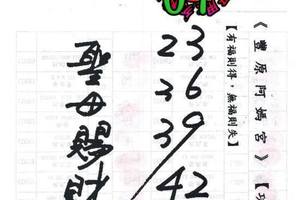 《豐原阿媽宮》【
【有福則得，無福則失】
23
36
39
42
聖母賜